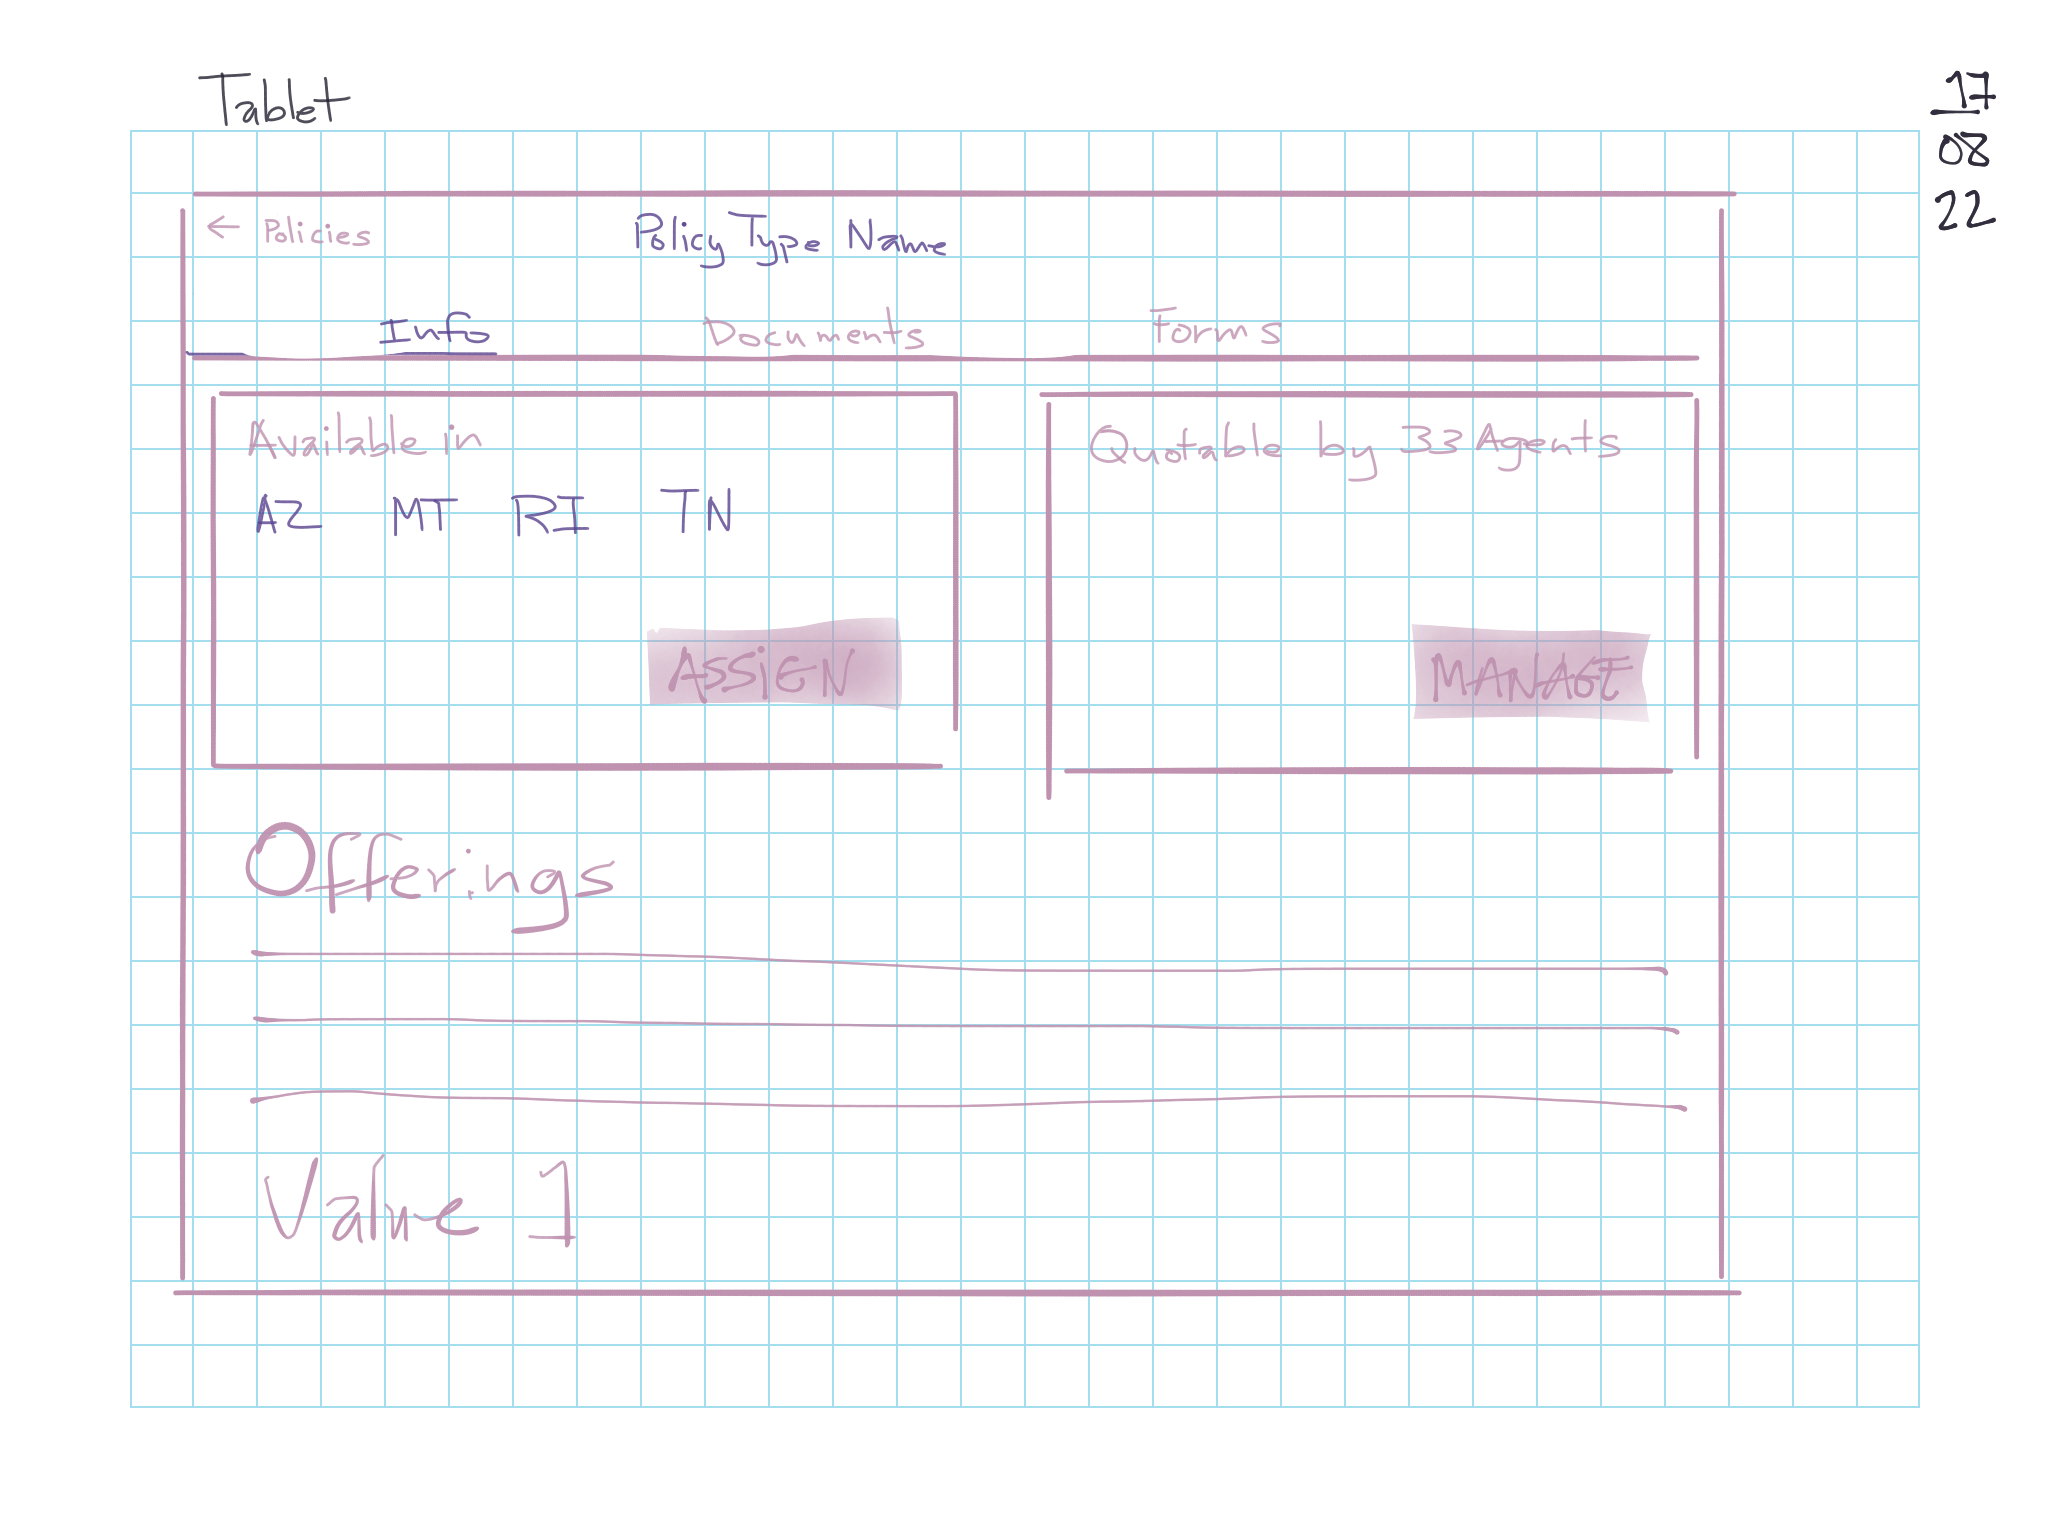 Tablet
17
08
22
← Policies
Policy Type Name
Info
Documents
Forms
Available in
AZ MT RI TN
ASSiGN
Quotable by 33 Agents
MANAGE
Offerings
Value 1